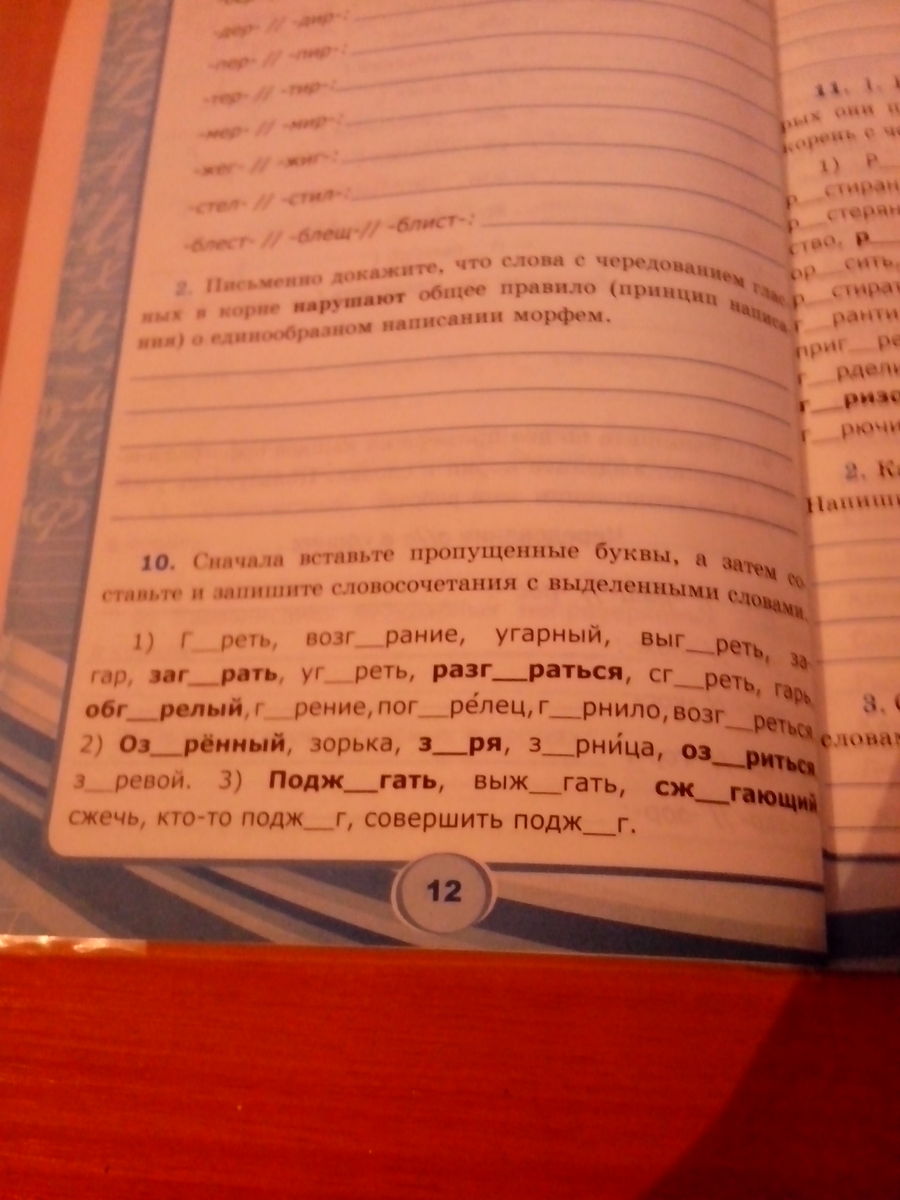 -дер- // -дир-:
-пер- // -пир-:
-тер- // -тир-:
-мер- // -мир-:
-жег- // -жиг-:
-стел- // -стил-:
-блест- // -блещ-// -блист-:
2. Письменно докажите, что слова с чередованием глас-
ных в корне нарушают общее правило (принцип написа-
ния) о единообразном написании морфем.
10. Сначала вставьте пропущенные буквы, а затем со-
ставьте и запишите словосочетания с выделенными словами.
1) Г__реть, возг__рание, угарный, выг__реть, за-
гар, заг__рать, уг__реть, разг__раться, сг__реть, гарь,
обг__релый, г__рение, пог__ре́лец, г__рнило, возг__реться.
2) Оз__рённый, зорька, з__ря, з__рни́ца, оз__риться,
з__ревой. 3) Подж__гать, выж__гать, сж__гающий,
сжечь, кто-то подж__г, совершить подж__г.
12
11. 1.
рых они
корень с
1) Р__
р__стиран
р__стерян
ство, р__
ор__сить,
р__стират
г__ранти
приг__ре
г__рдели
г__ризо
г__рючи
2. Ка
Напиши
3.
словам